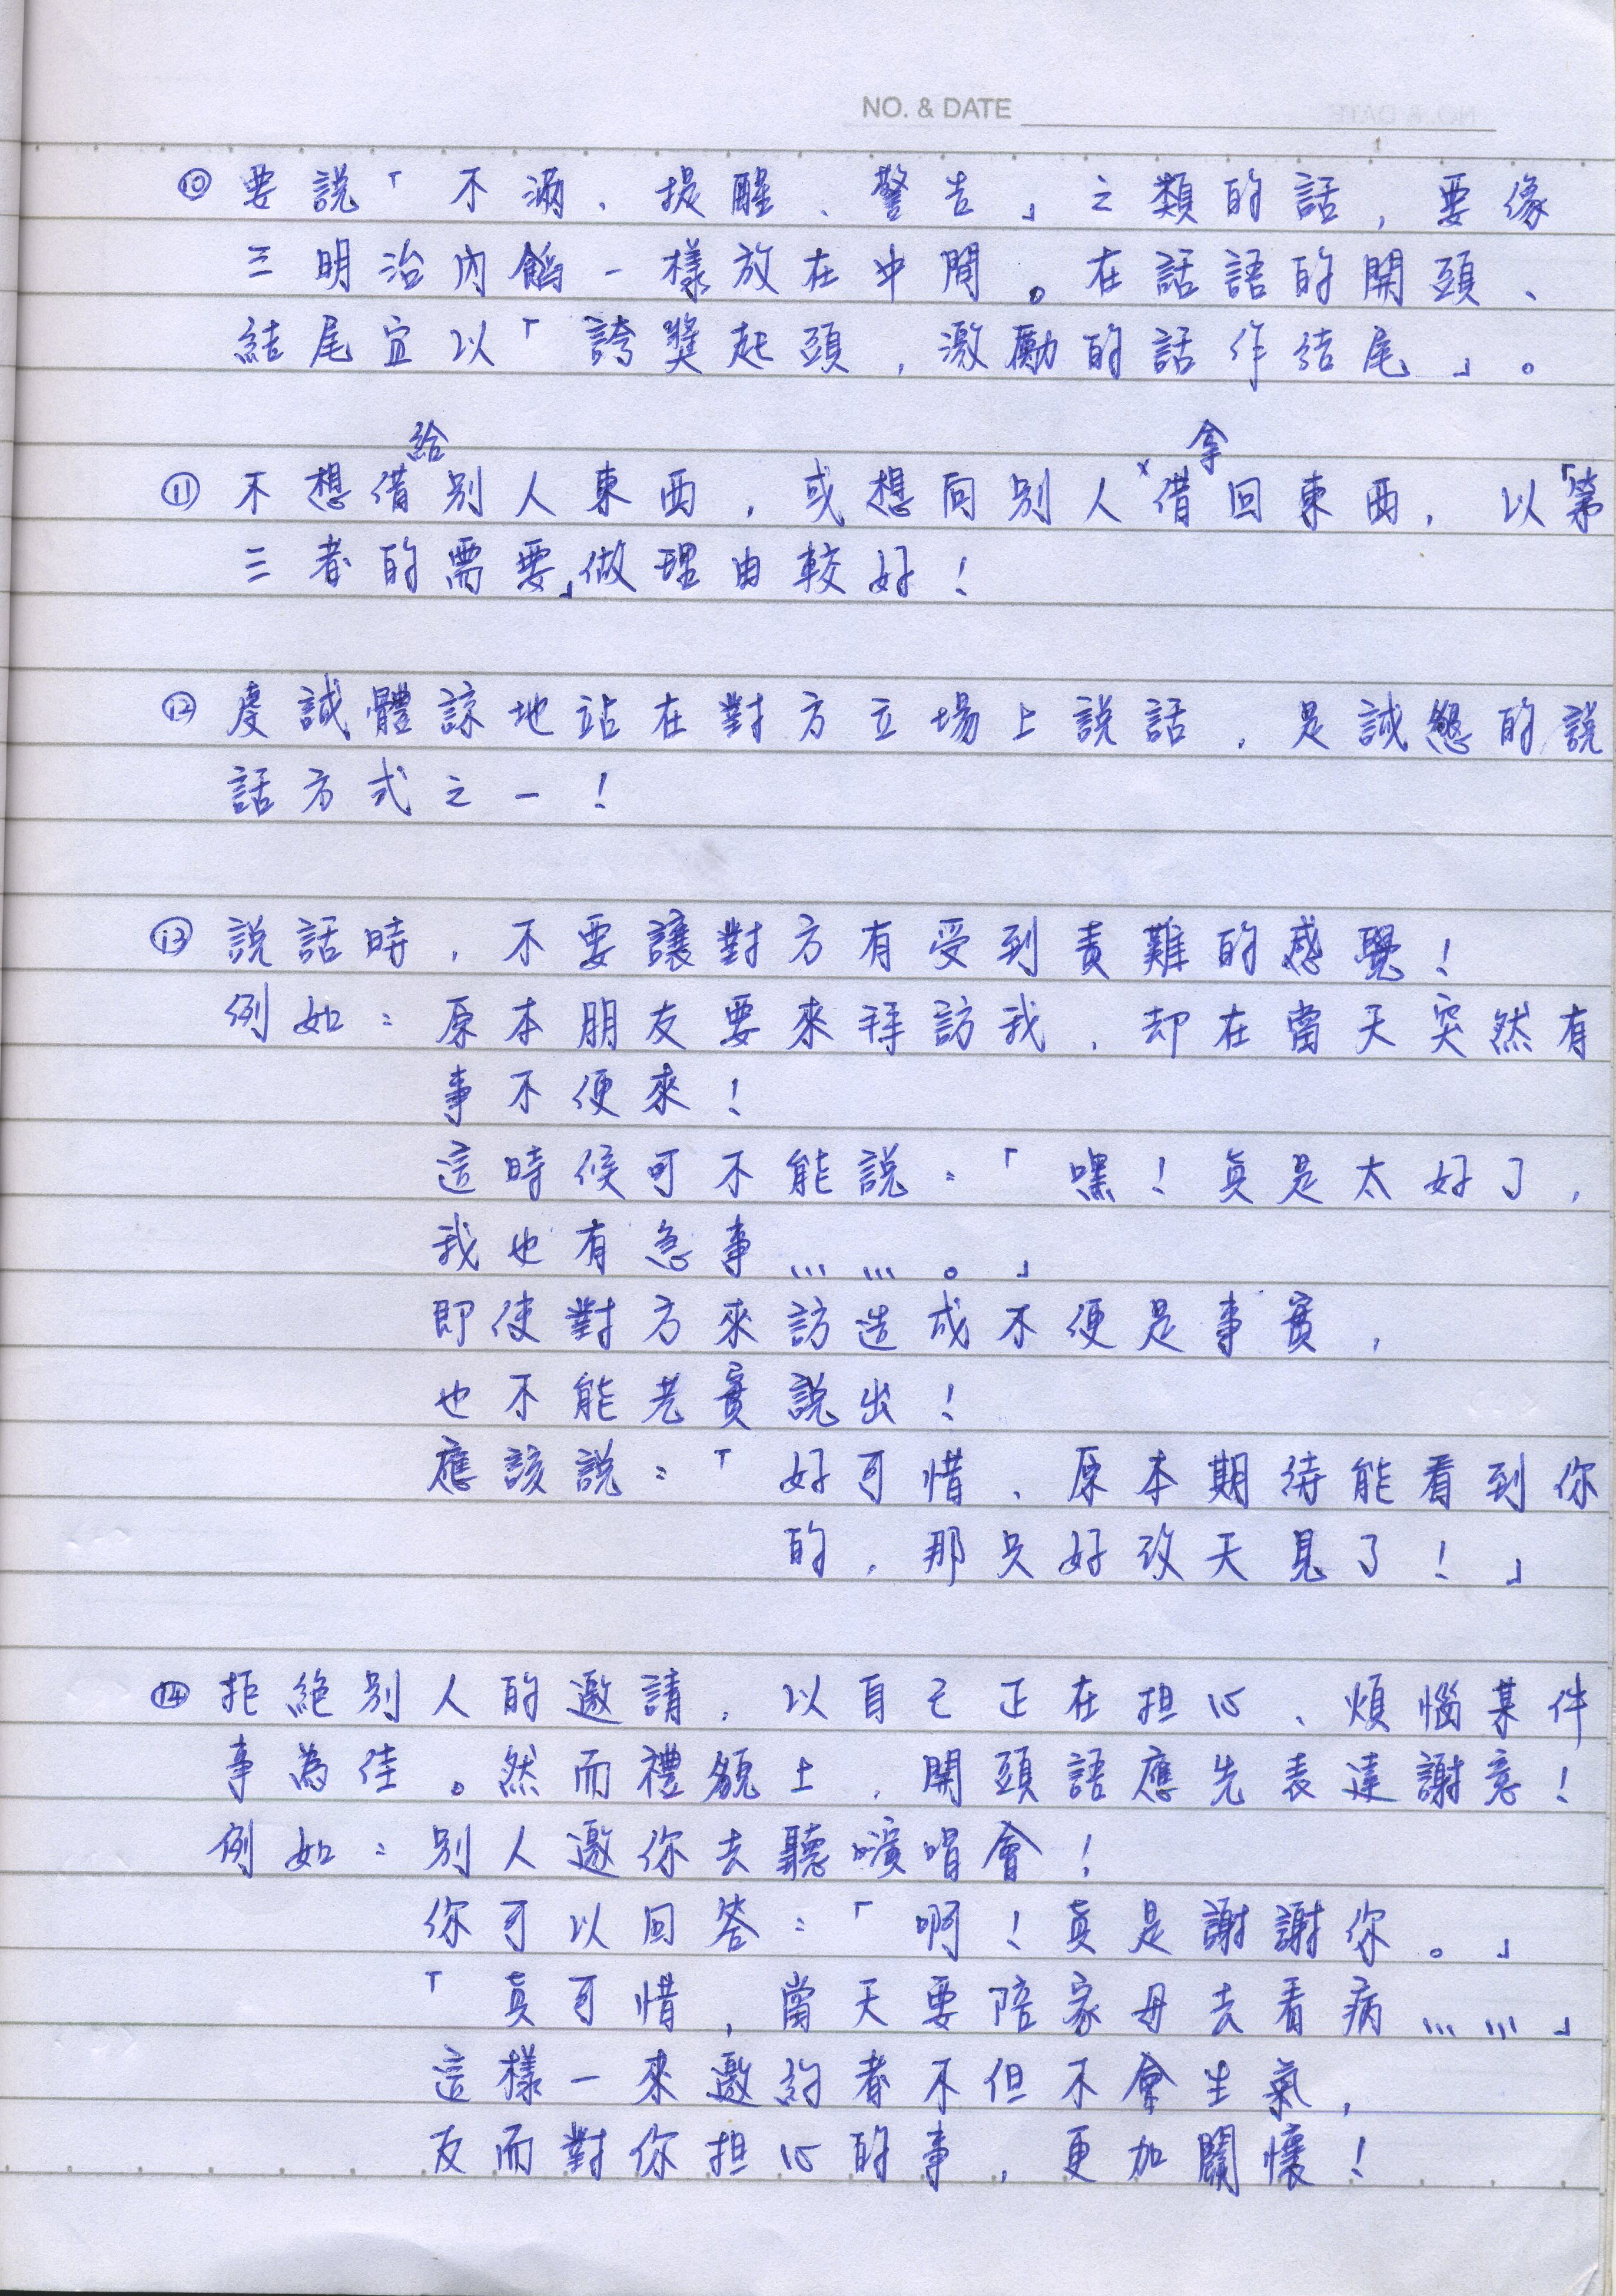 NO. & DATE
⑩ 要說「不滿、提醒、警告」之類的話，要像
三明治內餡一樣放在中間。在話語的開頭、
結尾宜以「誇獎起頭，激勵的話作結尾」。
給 拿
⑪ 不想借別人東西，或想向別人借回東西，以「第
三者的需要」做理由較好！
⑫ 虔誠體諒地站在對方立場上說話，是誠懇的說
話方式之一！
⑬ 說話時，不要讓對方有受到責難的感覺！
例如：原本朋友要來拜訪我，却在當天突然有
事不便來！
這時候可不能說：「嘿！真是太好了，
我也有急事………。」
即使對方來訪造成不便是事實，
也不能老實說出！
應該說：「好可惜、原本期待能看到你
的，那只好改天見了！」
⑭ 拒絕別人的邀請，以自己正在担心、煩惱某件
事為佳。然而禮貌上，開頭語應先表達謝意！
例如：別人邀你去聽演唱會！
你可以回答：「啊！真是謝謝你。」
「真可惜，當天要陪家母去看病……」
這樣一來邀約者不但不會生氣，
反而對你担心的事，更加關懷！